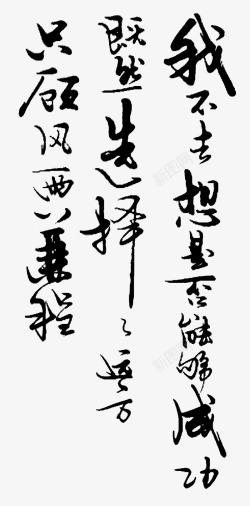 我不去想是否能够成功
既然选择了远方
只顾风雨兼程